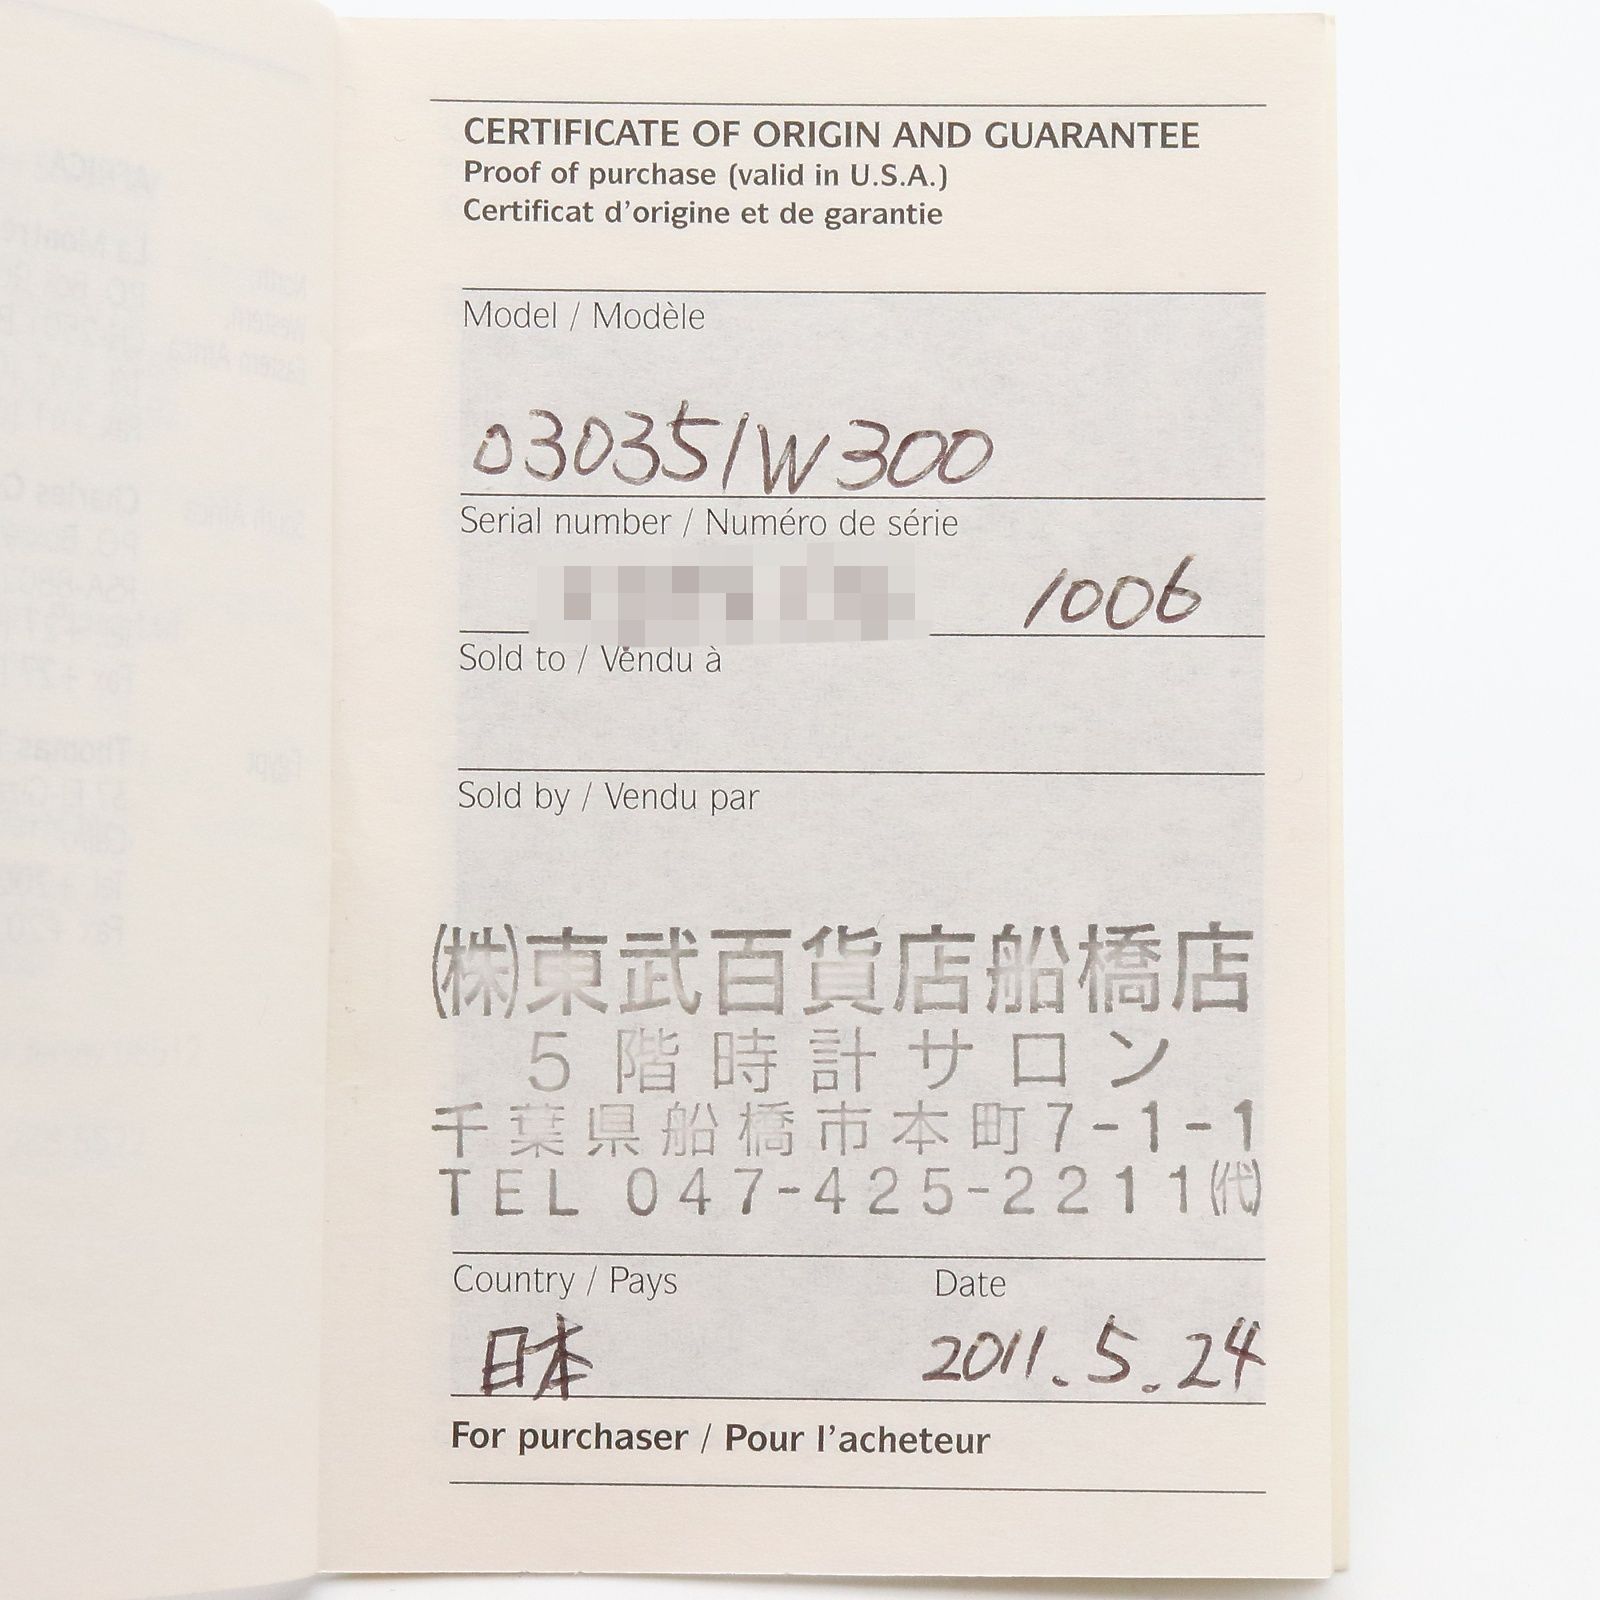 CERTIFICATE OF ORIGIN AND GUARANTEE
Proof of purchase (valid in U.S.A.)
Certificat d'origine et de garantie
Model / Modèle
030351W300
Serial number / Numéro de série
1006
Sold to / Vendu à
Sold by / Vendu par
㈱東武百貨店船橋店
5階時計サロン
千葉県船橋市本町7-1-1
TEL 047-425-2211㈹
Country / Pays
Date
日本
2011.5.24
For purchaser / Pour l'acheteur